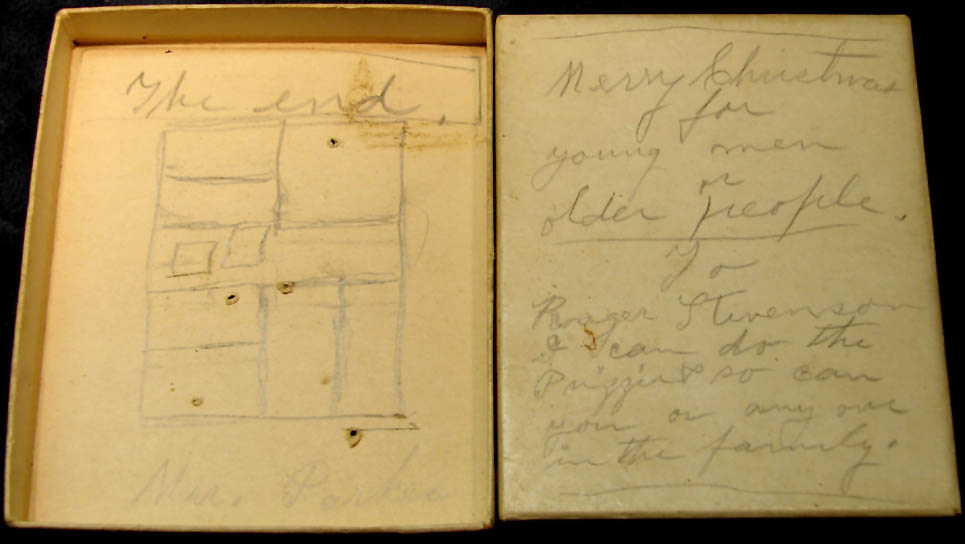 The end.
Mrs. Parker
Merry Christmas
for
young men
or
older people.
To
Roger Stevenson
I can do the
so can
you or any one
in the family.